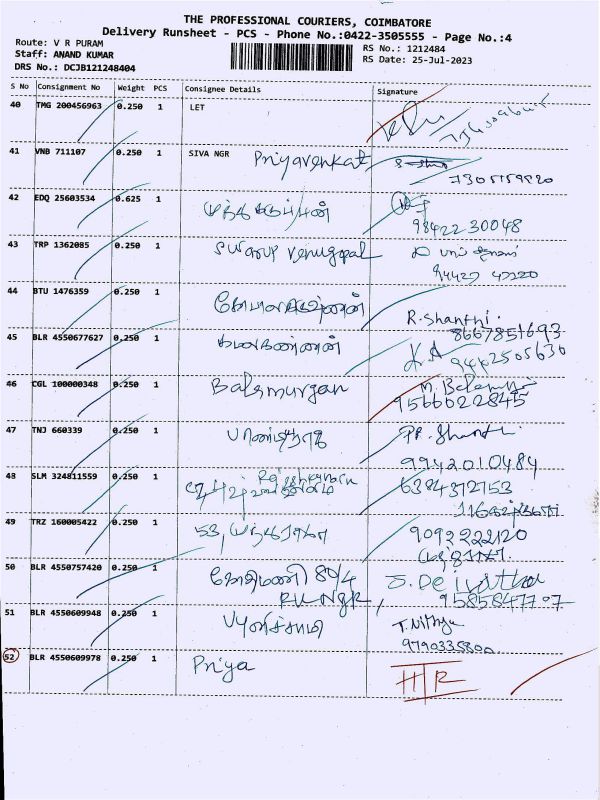 THE PROFESSIONAL COURIERS, COIMBATORE
Delivery Runsheet - PCS - Phone No.:0422-3505555 - Page No.:4
Route: V R PURAM
Staff: ANAND KUMAR
DRS No.: DCJB121248404
RS No.: 1212484
RS Date: 25-Jul-2023
S No Consignment No Weight PCS Consignee Details Signature
40 TMG 200456963 0.250 1 LET
41 VNB 711107 0.250 1 SIVA NGR Priyavenkat
7305159220
42 EDQ 25603534 0.625 1
98422 30048
43 TRP 1362085 0.250 1 Swarup venugopal
94427 42220
44 BTU 1476359 0.250 1 R. Shanthi
8667851693
45 BLR 4550677627 0.250 1 K.A
9442505630
46 CGL 100000348 0.250 1 Balamurgan
9566022845
47 TNJ 660339 0.250 1 பாண்டிராஜ்
9942010484
48 SLM 324811559 0.250 1
6384372153
49 TRZ 160005422 0.250 1 53,
9092222120
50 BLR 4550757420 0.250 1 ஜோதிமணி 80/4 S. Deivatha
R.V. Ngr, 9585847707
51 BLR 4550609948 0.250 1 பழனிச்சாமி T. Nithya
9790335800
52 BLR 4550609978 0.250 1 Priya HTR